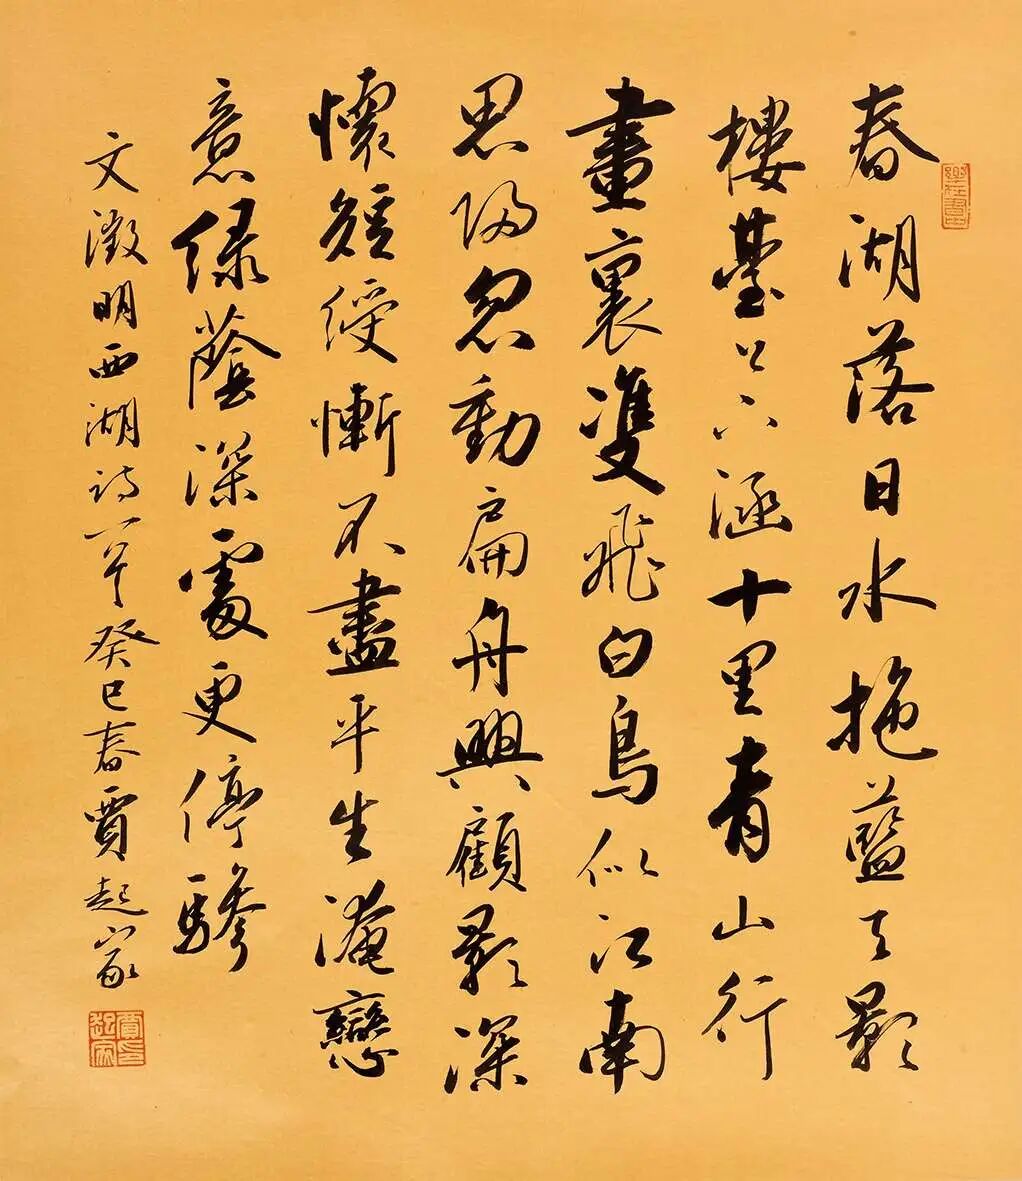 春湖落日水拖藍天影
樓臺上下涵十里青山行
畫裏雙飛白鳥似江南
思歸忽動扁舟興顧影深
懷短綬慚不盡平生淹戀
意綠蔭深處更停驂
文徵明西湖诗一首癸巳春賈起家
賈起家印